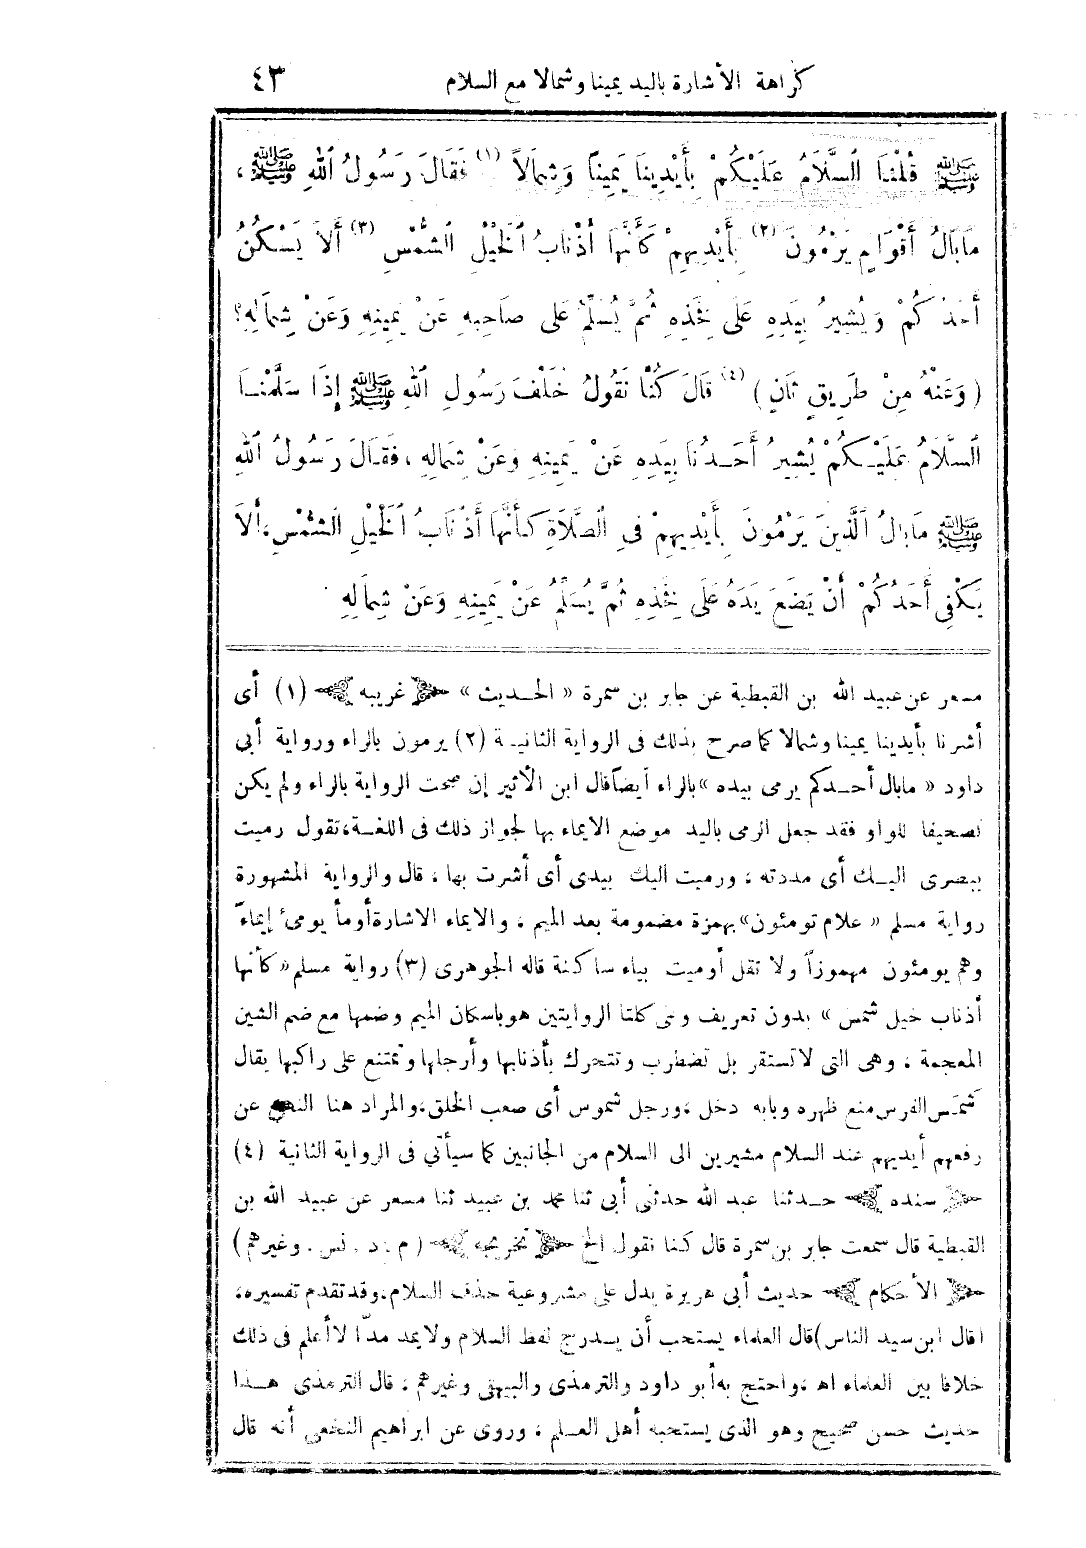 كراهة الأشارة باليد يمينا وشمالا مع السلام ٤٣
ﷺ قُلْنَا السَّلَامُ عَلَيْكُمْ بِأَيْدِينَا يَمِينًا وَشِمَالاً (١) فَقَالَ رَسُولُ اللهِ ﷺ ،
مَابَالُ أَقْوَامٍ يَرْمُونَ (٢) بِأَيْدِيهِمْ كَأَنَّهَا أَذْنَابُ الْخَيْلِ الشُّمْسِ (٣) أَلاَ يَسْكُنُ
أَحَدُكُمْ وَيُشِيرُ بِيَدِهِ عَلَى فَخِذِهِ ثُمَّ يُسَلِّمُ عَلَى صَاحِبِهِ عَنْ يَمِينِهِ وَعَنْ شِمَالِهِ؟
(وَعَنْهُ مِنْ طَرِيقٍ ثَانٍ) (٤) قَالَ كُنَّا نَقُولُ خَلْفَ رَسُولِ اللهِ ﷺ إِذَا سَلَّمْنَا
السَّلَامُ عَلَيْكُمْ يُشِيرُ أَحَدُنَا بِيَدِهِ عَنْ يَمِينِهِ وَعَنْ شِمَالِهِ ، فَقَالَ رَسُولُ اللهِ
ﷺ مَابَالُ الَّذِينَ يَرْمُونَ بِأَيْدِيهِمْ فِي الصَّلَاةِ كَأَنَّهَا أَذْنَابُ الْخَيْلِ الشُّمْسِ، أَلاَ
يَكْفِي أَحَدُكُمْ أَنْ يَضَعَ يَدَهُ عَلَى فَخِذِهِ ثُمَّ يُسَلِّمُ عَنْ يَمِينِهِ وَعَنْ شِمَالِهِ
مسعر عن عبيد الله بن القبطية عن جابر بن سمرة « الحديث » غريبه (١) أى
أشرنا بأيدينا يمينا وشمالا كما صرح بذلك فى الرواية الثانية (٢) يرمون بالراء ورواية أبى
داود « مابال أحدكم يرمى بيده » بالراء أيضاً قال ابن الأثير إن صحت الرواية بالراء ولم يكن
تصحيفا للواو فقد جعل الرمى باليد موضع الايماء بها لجواز ذلك فى اللغة، تقول رميت
ببصرى اليك أى مددته ، ورميت اليك بيدى أى أشرت بها ، قال والرواية المشهورة
رواية مسلم « علام تومئون» بهمزة مضمومة بعد الميم ، والايماء الاشارة أومأ يومئ إيماءً
وهم يومئون مهموزاً ولا تقل أوميت بياء ساكنة قاله الجوهرى (٣) رواية مسلم « كأنها
أذناب خيل شمس » بدون تعريف وفى كلتا الروايتين هو باسكان الميم وضمها مع ضم الشين
المعجمة ، وهى التى لا تستقر بل تضطرب وتتحرك بأذنابها وأرجلها وتمتنع على راكبها يقال
شَمَس الفرس منع ظهره وبابه دخل ، ورجل شموس أى صعب الخلق، والمراد هنا النهى عن
رفعهم أيديهم عند السلام مشيرين الى السلام من الجانبين كما سيأتى فى الرواية الثانية (٤)
سنده حدثنا عبد الله حدثنى أبى ثنا محمد بن عبيد ثنا مسعر عن عبيد الله بن
القبطية قال سمعت جابر بن سمرة قال كنا نقول الخ تخريجه ( م . د . نس . وغيرهم )
الأحكام حديث أبى هريرة يدل على مشروعية حذف السلام، وقد تقدم تفسيره،
(قال ابن سيد الناس) قال العلماء يستحب أن يدرج لفظ السلام ولا يمد مدّا لا أعلم فى ذلك
خلافا بين العلماء اه ، واحتج به أبو داود والترمذى والبيهقى وغيرهم ، قال الترمذى هذا
حديث حسن صحيح وهو الذى يستحبه أهل العلم ، وروى عن ابراهيم النخعى أنه قال